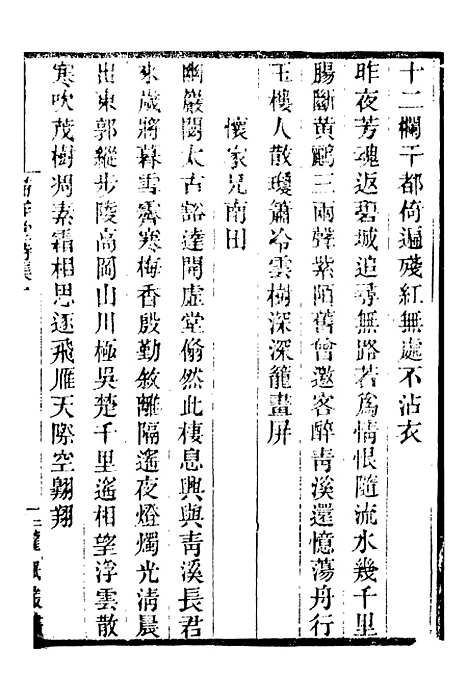 十二欄干都倚遍殘紅無處不沾衣
昨夜芳魂返碧城追尋無路若爲情恨隨流水幾千里
腸斷黃鸝三兩聲紫陌舊曾邀客醉靑溪還憶蕩舟行
玉樓人散瓊簫冷雲樹深深籠畫屏
懷家兄南田
幽巖閟太古谿達開虛堂翛然此棲息興與靑溪長君
來歲將暮雪霽寒梅香殷勤敘離隔遙夜燈燭光淸晨
出東郭縱步陵高岡山川極吳楚千里遙相望浮雲散
寒吹茂樹凋素霜相思逐飛雁天際空翺翔